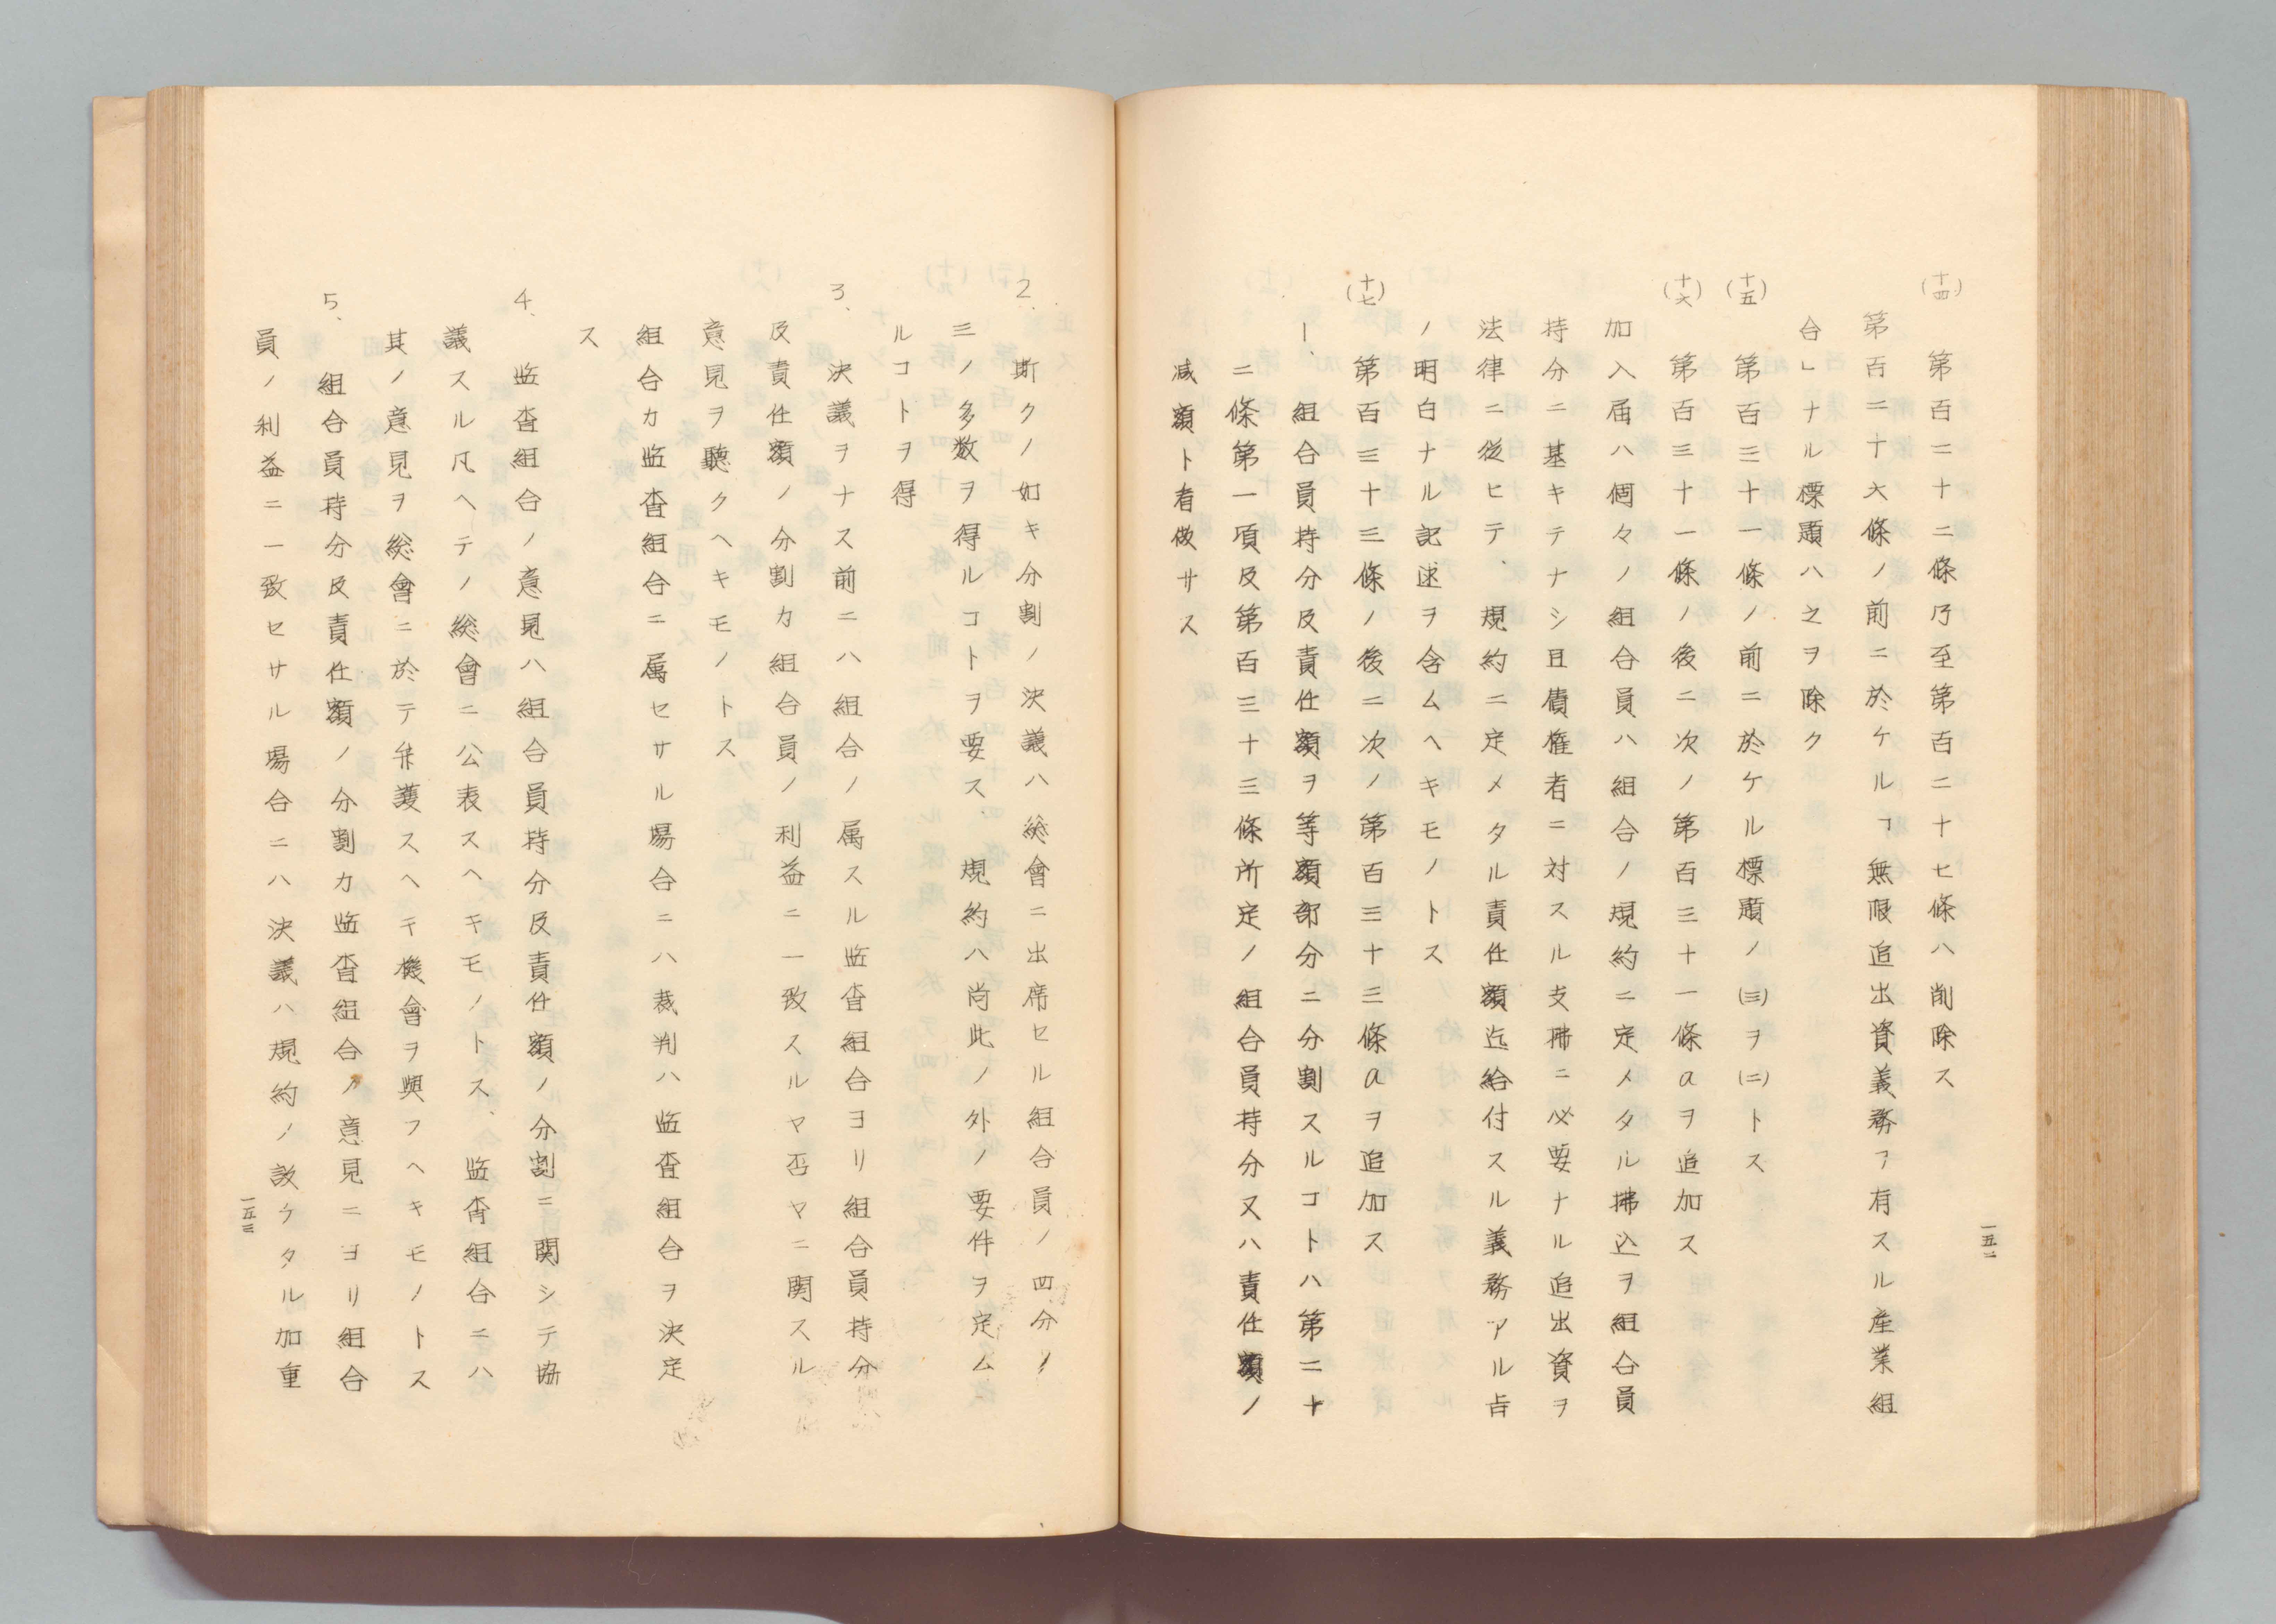 (十四)
第百二十二條乃至第百二十七條ハ削除ス
第百二十六條ノ前ニ於ケル「無限追出資義務ヲ有スル産業組
合」ナル標題ハ之ヲ除ク
(十五)
第百三十一條ノ前ニ於ケル標題ノ(三)ヲ(二)トス
(十六)
第百三十一條ノ後ニ次ノ第百三十一條aヲ追加ス
加入届ハ個々ノ組合員ハ組合ノ規約ニ定メタル拂込ヲ組合員
持分ニ基キテナシ且債権者ニ対スル支拂ニ必要ナル追出資ヲ
法律ニ從ヒテ、規約ニ定メタル責任額迄給付スル義務アル旨
ノ明白ナル記述ヲ含ムヘキモノトス
(十七)
第百三十三條ノ後ニ次ノ第百三十三條aヲ追加ス
1、組合員持分及責任額ヲ等額部分ニ分割スルコトハ第二十
二條第一項及第百三十三條所定ノ組合員持分又ハ責任額ノ
減額ト看做サス
一五二
2、斯クノ如キ分割ノ決議ハ総會ニ出席セル組合員ノ四分ノ
三ノ多数ヲ得ルコトヲ要ス、規約ハ尚此ノ外ノ要件ヲ定ム
ルコトヲ得
3、決議ヲナス前ニハ組合ノ属スル監査組合ヨリ組合員持分
及責任額ノ分割カ組合員ノ利益ニ一致スルヤ否ヤニ関スル
意見ヲ聽クヘキモノトス
組合カ監査組合ニ属セサル場合ニハ裁判ハ監査組合ヲ決定
ス
4、監査組合ノ意見ハ組合員持分及責任額ノ分割ニ関シテ協
議スル凡ヘテノ総會ニ公表スヘキモノトス、監査組合ニハ
其ノ意見ヲ総會ニ於テ弁護スヘキ機會ヲ與フヘキモノトス
5、組合員持分及責任額ノ分割カ監査組合ノ意見ニヨリ組合
員ノ利益ニ一致セサル場合ニハ決議ハ規約ノ設ケタル加重
一五三